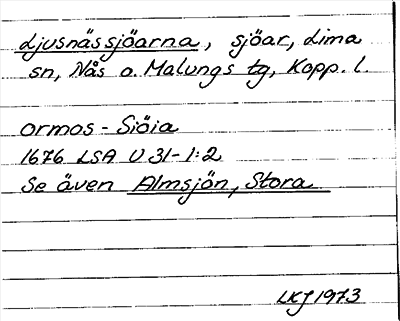 Ljusnässjöarna, sjöar, Lima
sn, Nås o. Malungs tg, Kopp. l.
ormos - Siöia
1676 LSA U 31-1:2
Se även Almsjön, Stora
LKJ 1973